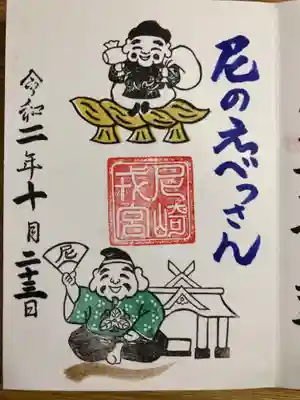 尼のえべっさん
尼崎
戎宮
尼
令和二年十月二十三日